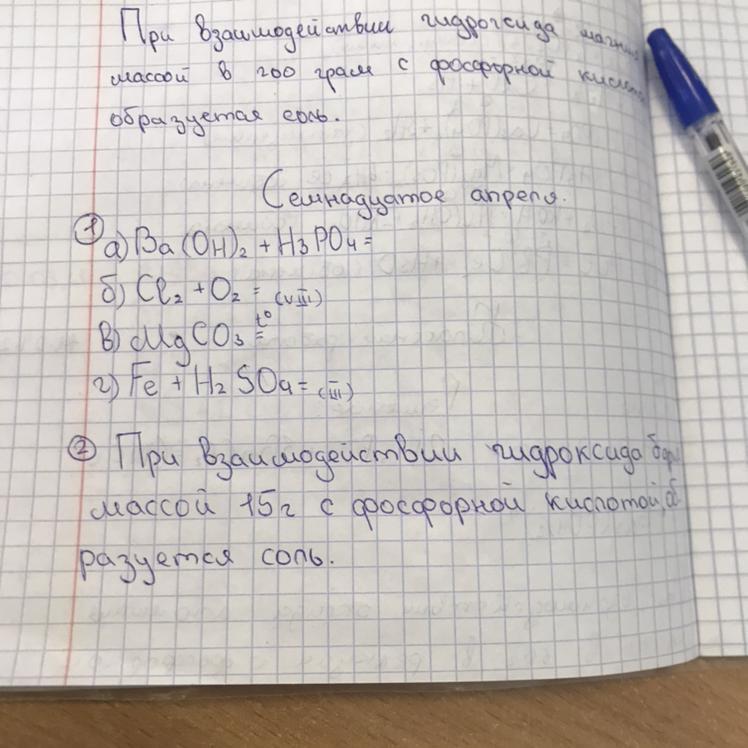 При взаимодействии гидрогсида магния
массой в 200 грам с фосфорной
образуется соль.
Семнадцатое апреля.
1 а) Ba(OH)₂ + H₃PO₄ =
б) Cl₂ + O₂ = (VII)
в) MgCO₃ t° =
г) Fe + H₂SO₄ = (III)
2 При взаимодействии гидроксида
массой 15г с фосфорной кислотой об
разуется соль.